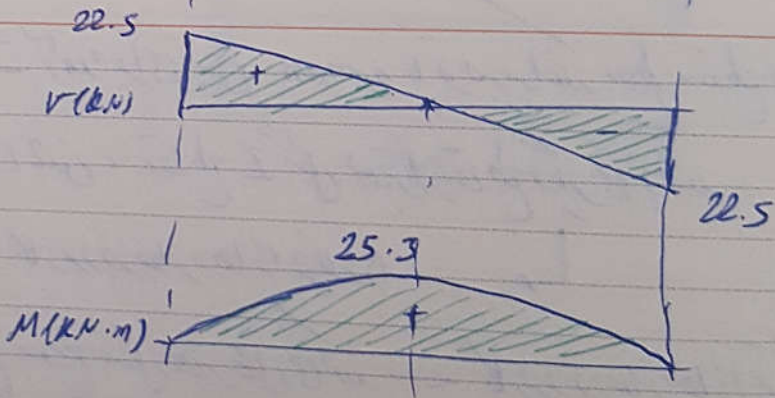 22.5
+
V(KN)
-
22.5
25.3
+
M(KN.m)